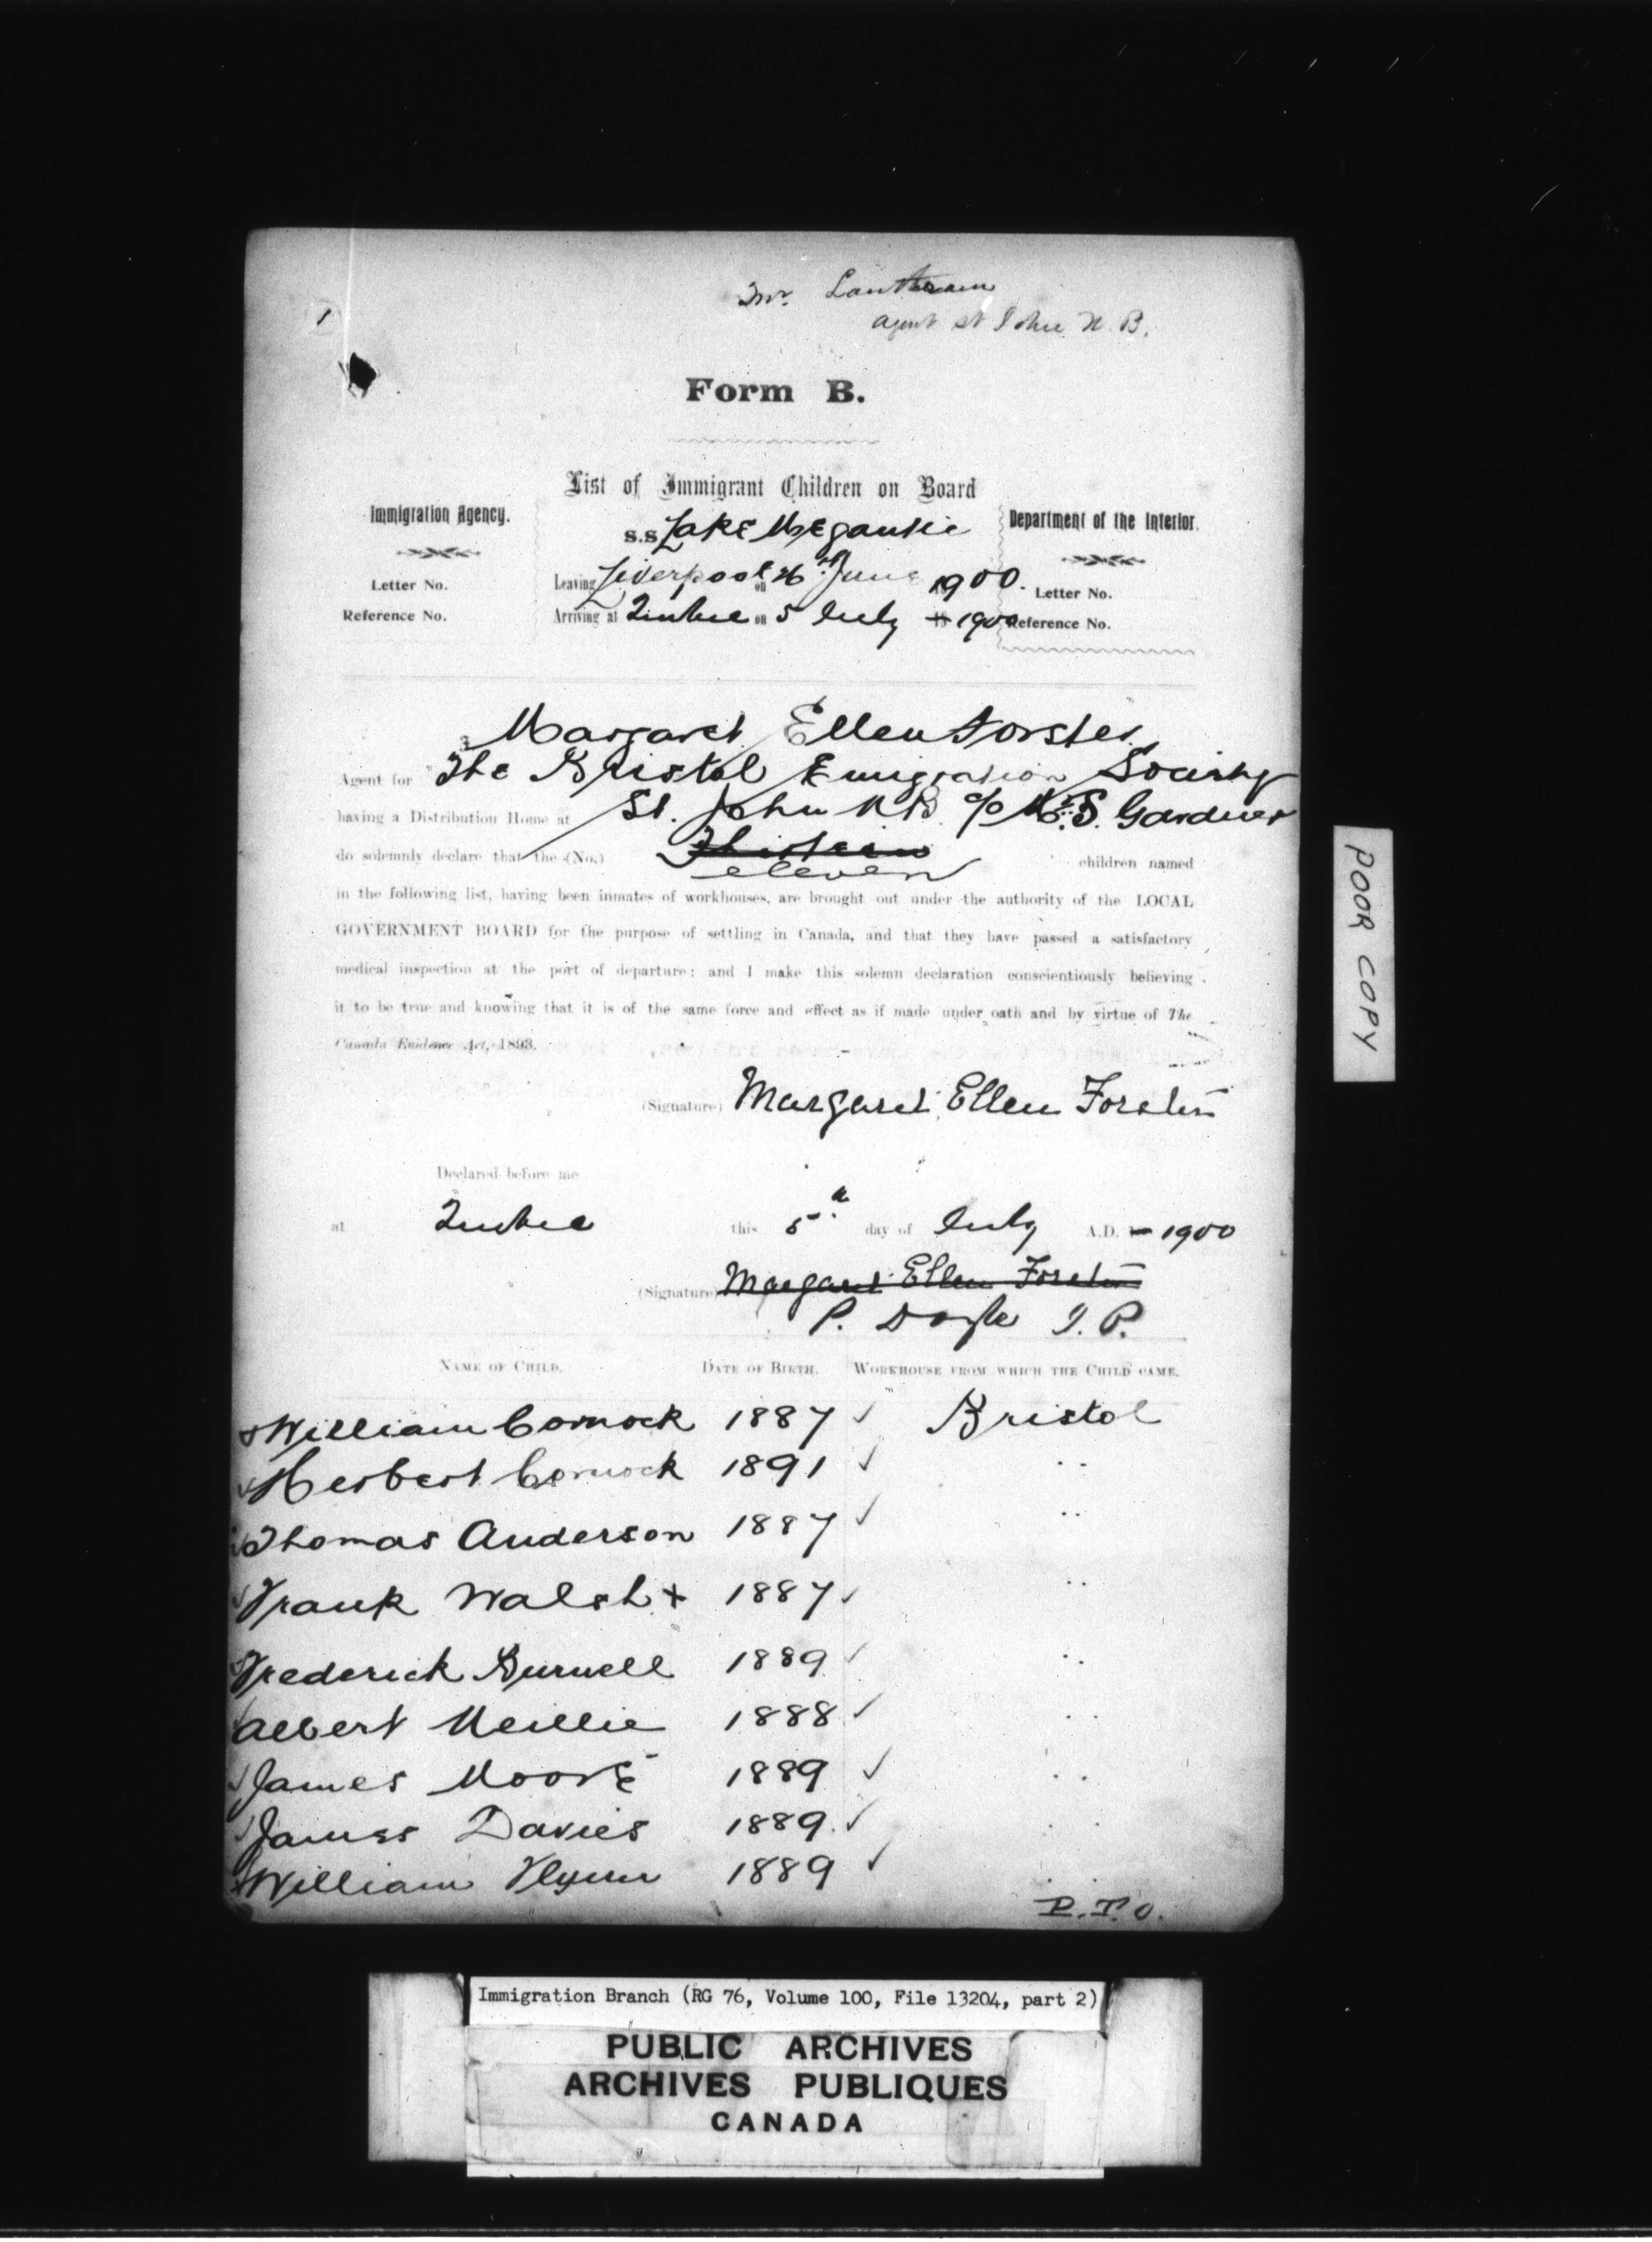 1
Mr. Lantram
agent St John N.B.
Form B.
List of Immigrant Children on Board
Immigration Agency.
S.S Lake Megantic
Department of the Interior.
Letter No.
Leaving Liverpool on 26th June 1900.
Letter No.
Reference No.
Arriving at Quebec on 5 July 18 1900
Reference No.
I Margaret Ellen Forster
Agent for "The Bristol Emigration Society
having a Distribution Home at St. John N.B. c/o S. Gardner
do solemnly declare that the (No.) Thirteen children named
eleven
in the following list, having been inmates of workhouses, are brought out under the authority of the LOCAL
GOVERNMENT BOARD for the purpose of settling in Canada, and that they have passed a satisfactory
medical inspection at the port of departure; and I make this solemn declaration conscientiously believing
it to be true and knowing that it is of the same force and effect as if made under oath and by virtue of The
Canada Evidence Act, 1893.
(Signature) Margaret Ellen Forster
Declared before me
at Quebec this 5th day of July A.D. - 1900
(Signature) Margaret Ellen Forster
P. Doyle J.P.
NAME OF CHILD. DATE OF BIRTH. WORKHOUSE FROM WHICH THE CHILD CAME.
William Cornock 1887 ✓ Bristol
Herbert Cornock 1891 ✓ ..
Thomas Anderson 1887 ✓ ..
Frank Walsh + 1887 ✓ ..
Frederick Burnell 1889 ✓ ..
Albert Meillie 1888 ✓ ..
James Moore 1889 ✓ ..
James Davies 1889. ✓ ..
William Flynn 1889 ✓ ..
P.T.O.
POOR COPY
Immigration Branch (RG 76, Volume 100, File 13204, part 2)
PUBLIC ARCHIVES
ARCHIVES PUBLIQUES
CANADA